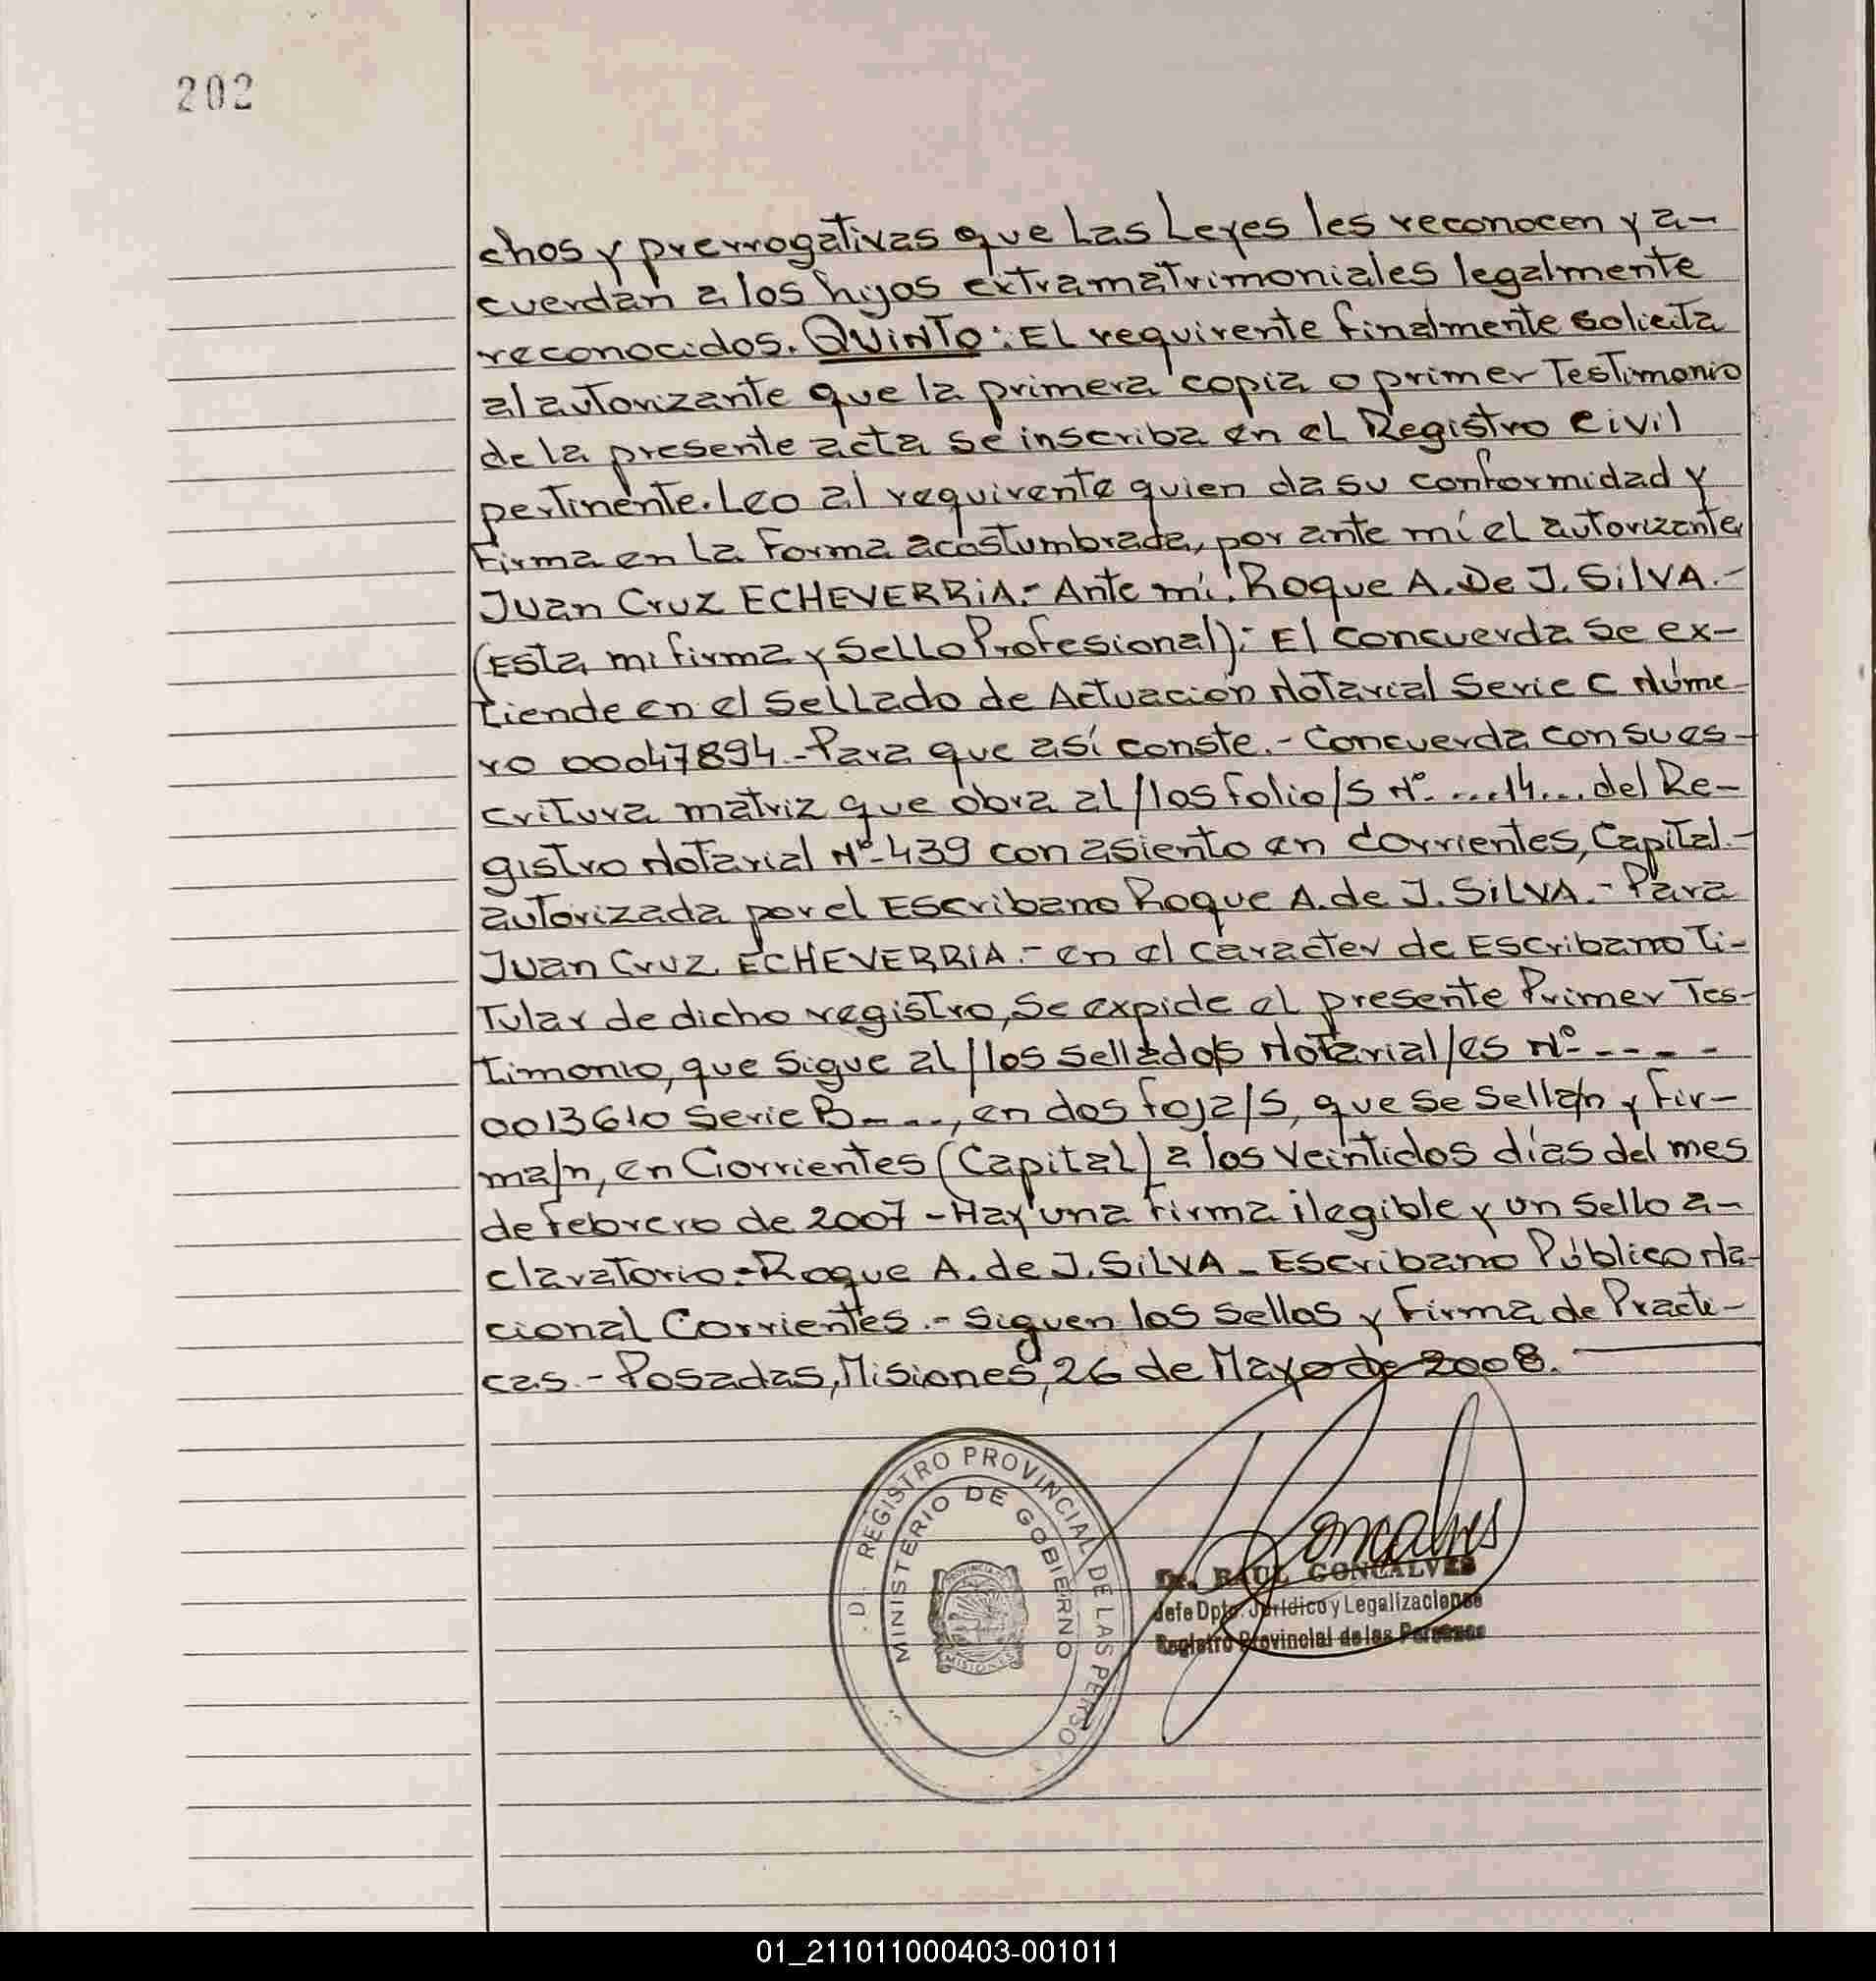 202
chos y prerrogativas que Las Leyes les reconocen y a-
cuerdan a los hijos extramatrimoniales legalmente
reconocidos. QUINTO: EL requirente finalmente solicita
al autorizante que la primera copia o primer Testimonio
de la presente acta se inscriba en el Registro Civil
pertinente. Leo al requirente quien da su conformidad y
Firma en La Forma acostumbrada, por ante mí el autorizante
Juan Cruz ECHEVERRIA.- Ante mi. Roque A. De J. SILVA.-
(Esta mi firma y Sello Profesional): El concuerda se ex-
tiende en el Sellado de Actuación Notarial Serie C Núme
ro 00047894.- Para que así conste.- Concuerda con su es-
critura matriz que obra al/los folio/s Nº....14... del Re-
gistro Notarial Nº-439 con asiento en Corrientes, Capital-
autorizada por el Escribano Roque A. de J. SILVA.- Para
Juan Cruz ECHEVERRIA.- en el caracter de Escribano Ti-
Tular de dicho registro, se expide el presente Primer Tes-
timonio, que sigue al/los sellado/s Notarial/es Nº-----
0013610 Serie B----, en dos foja/s, que se sella/n y fir-
ma/n, en Corrientes (Capital) a los veintidos días del mes
de febrero de 2007 - Hay una firma ilegible y un sello a-
claratorio.- Roque A. de J. SILVA - Escribano Público Na-
cional Corrientes.- Siguen los sellos y Firma de Practi-
cas.- Posadas, Misiones, 26 de Mayo de 2008.
REGISTRO PROVINCIAL DE LAS PERSO
MINISTERIO DE GOBIERNO
PROVINCIA DE
MISIONES
Goncalves
Dr. RAUL GONCALVES
Jefe Dpto. Jurídico y Legalizaciones
Registro Provincial de las Personas
01_211011000403-001011